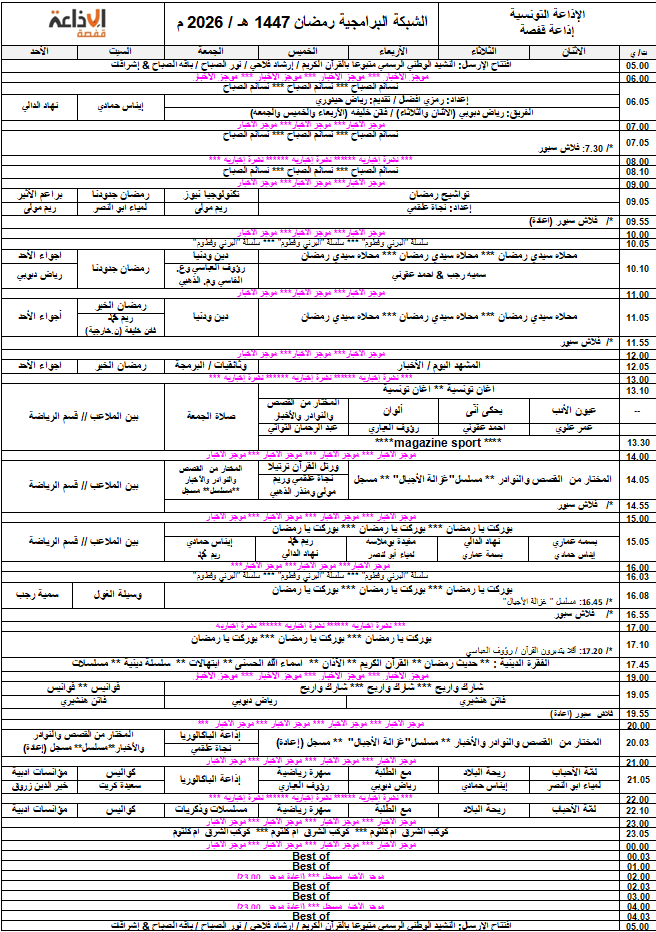 الإذاعة التونسية
إذاعة قفصة
الشبكة البرامجية رمضان 1447 هـ / 2026 م
الإذاعة
قفصة
ت/ي الأثنان الثلاثاء الأربعاء الخميس الجمعة السبت الأحد
05.00 افتتاح الإرسال: النشيد الوطني الرسمي متبوعا بالقرآن الكريم / إرشاد فلاحي / نور الصباح / باقة الصباح & إشراقات
06.00 موجز الأخبار *** موجز الأخبار *** موجز الأخبار *** موجز الأخبار
06.05 نسائم الصباح *** نسائم الصباح *** نسائم الصباح
إعداد: رمزي أفضال / تقديم: رياض حيدوري
الفريق: رياض دبوبي (الأثنين والثلاثاء) / فاتن خليفة (الأربعاء والخميس والجمعة)
إيناس حمادي
نهاد الدالي
07.00 موجز الأخبار *** موجز الأخبار *** موجز الأخبار
07.05 نسائم الصباح *** نسائم الصباح *** نسائم الصباح
*/ 7.30: فلاش سبور
08.00 نشرة إخبارية ****** نشرة إخبارية ****** نشرة إخبارية ***
08.10 نسائم الصباح *** نسائم الصباح *** نسائم الصباح
09.00 موجز الأخبار *** موجز الأخبار *** موجز الأخبار
09.05 تواشيح رمضان
إعداد: نجاة علقمي
تكنولوجيا نيوز
ريم مولى
رمضان جدودنا
لمياء ابو النصر
براعم الأثير
ريم مولى
09.55 */ فلاش سبور (إعادة)
10.00 موجز الأخبار *** موجز الأخبار *** موجز الأخبار
10.05 سلسلة "البرني وفطوم" *** سلسلة "البرني وفطوم" *** سلسلة "البرني وفطوم"
10.10 محلاه سيدي رمضان *** محلاه سيدي رمضان *** محلاه سيدي رمضان
سمية رجب & احمد عفوني
دين ودنيا
رؤوف العباسي وع. القاسي وم. الذهبي
رمضان جدودنا
اجواء الأحد
رياض دبوبي
11.00 موجز الأخبار *** موجز الأخبار *** موجز الأخبار
11.05 محلاه سيدي رمضان *** محلاه سيدي رمضان *** محلاه سيدي رمضان
دين ودنيا
رمضان الخير
فاتن خليفة (ن.خارجية)
أجواء الأحد
11.55 */ فلاش سبور
12.00 موجز الأخبار *** موجز الأخبار *** موجز الأخبار
12.05 المشهد اليوم / الأخبار
وثائقيات / البرمجة
رمضان الخير
اجواء الأحد
13.00 نشرة إخبارية ****** نشرة إخبارية ****** نشرة إخبارية ***
13.10 أغان تونسية ** أغان تونسية
-- عيون الأدب
عمر علوي
يحكى أنّي
احمد عفوني
ألوان
رؤوف العياري
المختار من القصص والنوادر والأخبار
عبد الرحمان التواتي
صلاة الجمعة
بين الملاعب // قسم الرياضة
13.30 ****magazine sport ****
14.00 موجز الأخبار *** موجز الأخبار *** موجز الأخبار *** موجز الأخبار
14.05 المختار من القصص والنوادر ** مسلسل"غزالة الأجيال" ** مسجل
ورتل القرآن ترتيلا
نجاة علقمي وريم مولى ومنذر الذهبي
المختار من القصص والنوادر والأخبار **مسلسل** مسجل
بين الملاعب // قسم الرياضة
14.55 */ فلاش سبور
15.00 موجز الأخبار *** موجز الأخبار *** موجز الأخبار *** موجز الأخبار
15.05 بوركت يا رمضان *** بوركت يا رمضان *** بوركت يا رمضان
بسمة عماري
إيناس حمادي
نهاد الدالي
بسمة عماري
مفيدة بوملاسه
لمياء أبو لنصر
نهاد الدالي
إيناس حمادي
بين الملاعب // قسم الرياضة
16.00 موجز الأخبار*** موجز الأخبار*** موجز الأخبار***
16.03 سلسلة "البرني وفطوم" *** سلسلة "البرني وفطوم" *** سلسلة "البرني وفطوم"
16.08 بوركت يا رمضان *** بوركت يا رمضان *** بوركت يا رمضان
*/ 16.45: مسلسل " غزالة الأجيال"
وسيلة الغول
سمية رجب
16.55 */ فلاش سبور
17.00 نشرة إخبارية ****** نشرة إخبارية ****** نشرة إخبارية ***
17.10 بوركت يا رمضان *** بوركت يا رمضان *** بوركت يا رمضان
*/ 17.20: أفلا يتدبرون القرآن / رؤوف العباسي
17.45 الفقرة الدينية : ** حديث رمضان ** القرآن الكريم ** الآذان ** اسماء الله الحسنى ** ابتهالات ** سلسلة دينية ** مسلسلات
19.00 موجز الأخبار *** موجز الأخبار *** موجز الأخبار *** موجز الأخبار
19.05 شارك واربح *** شارك واربح *** شارك واربح
فوانيس ** فوانيس
فاتن هنشيري
رياض دبوبي
فاتن هنشيري
19.55 فلاش سبور (اعادة)
20.00 موجز الأخبار *** موجز الأخبار *** موجز الأخبار *** موجز الأخبار ***
20.03 المختار من القصص والنوادر والأخبار ** مسلسل"غزالة الأجيال" ** مسجل (إعادة)
إذاعة الباكالوريا
نجاة علقمي
المختار من القصص والنوادر والأخبار**مسلسل** مسجل (إعادة)
21.00 موجز الأخبار *** موجز الأخبار *** موجز الأخبار *** موجز الأخبار
21.05 لمّة الأحباب
لمياء ابو النصر
ريحة البلاد
إيناس حمادي
مع الطلبة
رياض دبوبي
سهرة رياضية
رؤوف العياري
إذاعة الباكالوريا
كواليس
سعيدة كريت
مؤانسات ادبية
خير الدين زروق
22.00 نشرة إخبارية ****** نشرة إخبارية ****** نشرة إخبارية ***
22.10 لمّة الأحباب
ريحة البلاد
مع الطلبة
سهرة رياضية
مسلسلات وذكريات
كواليس
مؤانسات ادبية
23.00 موجز الأخبار *** موجز الأخبار *** موجز الأخبار *** موجز الأخبار
23.05 كوكب الشرق ام كلثوم *** كوكب الشرق ام كلثوم *** كوكب الشرق ام كلثوم
00.00 موجز الأخبار *** موجز الأخبار *** موجز الأخبار *** موجز الأخبار
00.03 Best of
01.00 Best of
02.00 موجز الأخبار مسجل *** (إعادة موجز 23.00)
02.03 Best of
03.00 Best of
04.00 موجز الأخبار مسجل *** (إعادة موجز 23.00)
04.03 Best of
05.00 افتتاح الإرسال: النشيد الوطني الرسمي متبوعا بالقرآن الكريم / إرشاد فلاحي / نور الصباح / باقة الصباح & إشراقات